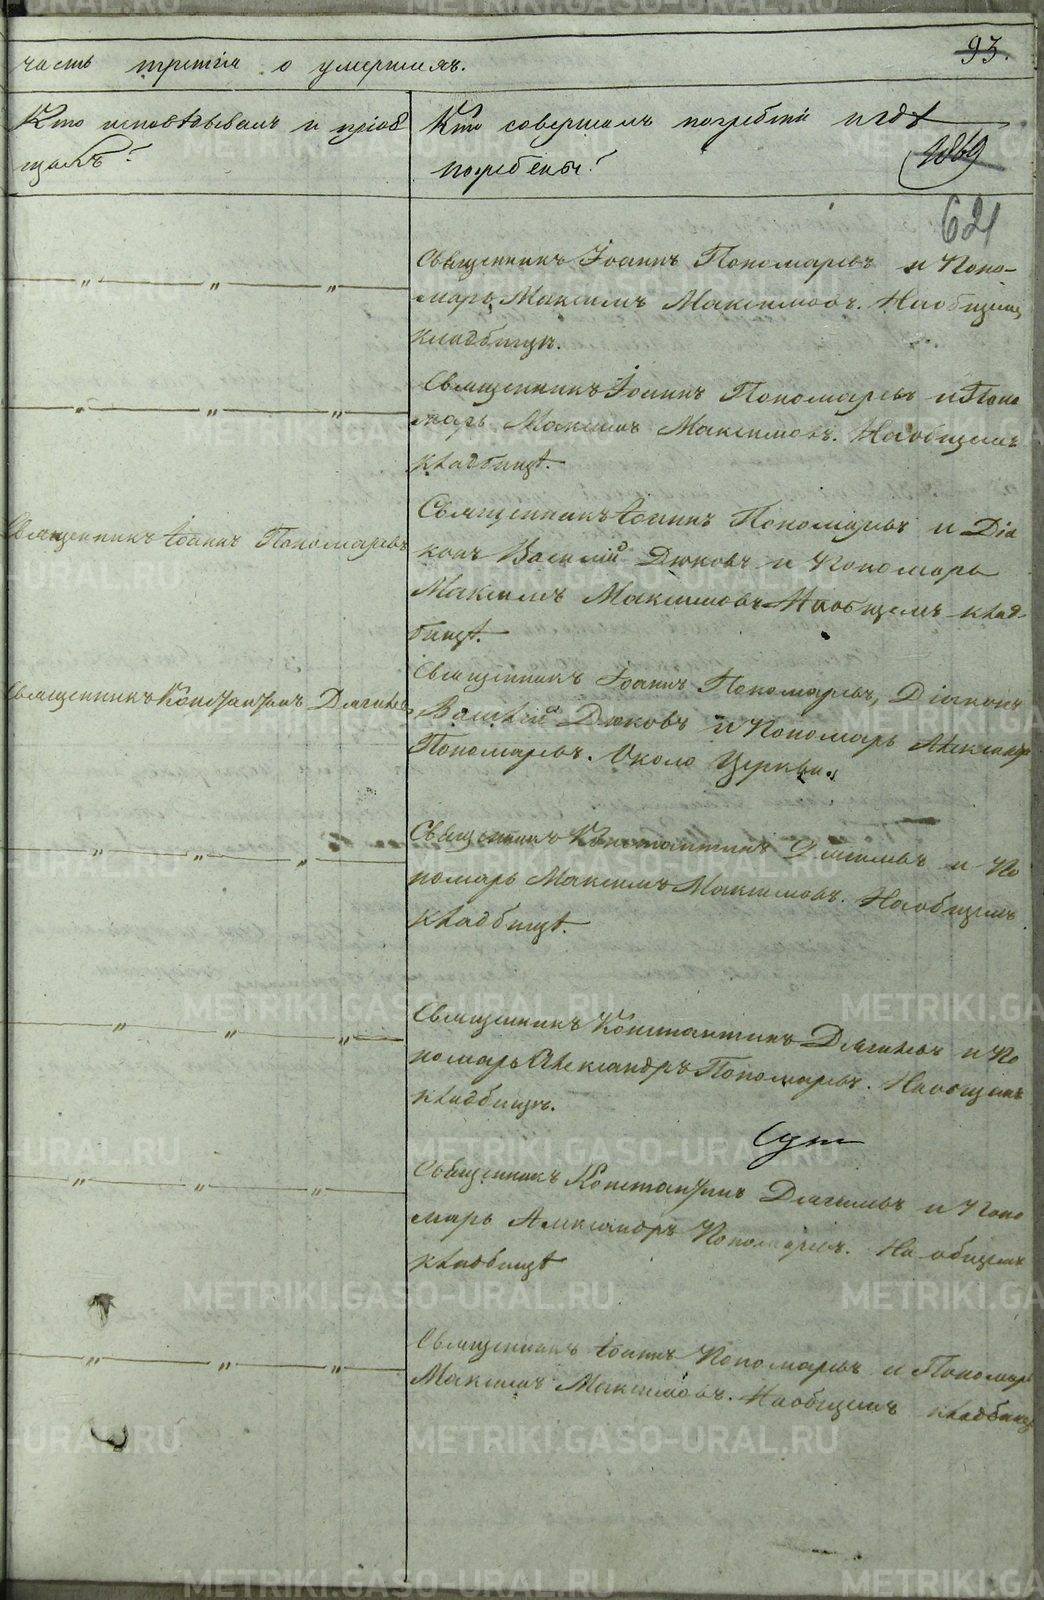 93.
часть третія о умершихъ.
Кто исповѣдывалъ и пріоб
щалъ?
Кто совершалъ погребеніе и гдѣ
погребены?
1869
621
" " "
Священникъ Іоаннъ Пономаревъ и Поно-
марь Максимъ Максимовъ. На общемъ
кладбищѣ.
" " "
Священникъ Іоаннъ Пономаревъ и Поно
марь Максимъ Максимовъ. На общемъ
кладбищѣ.
Священникъ Іоаннъ Пономаревъ
Священникъ Іоаннъ Пономаревъ и Діа
конъ Василій Дюковъ и Пономарь
Максимъ Максимовъ На общемъ клад-
бищѣ.
Священникъ Константинъ
Священникъ Іоаннъ Пономаревъ, Діаконъ
Василій Дюковъ и Пономарь Александръ
Пономаревъ. Около Церкви.
" " "
Священникъ Константинъ и По
номарь Максимъ Максимовъ. На общемъ
кладбищѣ.
" " "
Священникъ Константинъ и По
номарь Александръ Пономаревъ. На общемъ
кладбищѣ.
" " "
Священникъ Константинъ и Поно
марь Александръ Пономаревъ. На общемъ
кладбищѣ
" " "
Священникъ Іоаннъ Пономаревъ и Пономарь
Максимъ Максимовъ. На общемъ кладбищѣ
METRIKI.GASO-URAL.RU